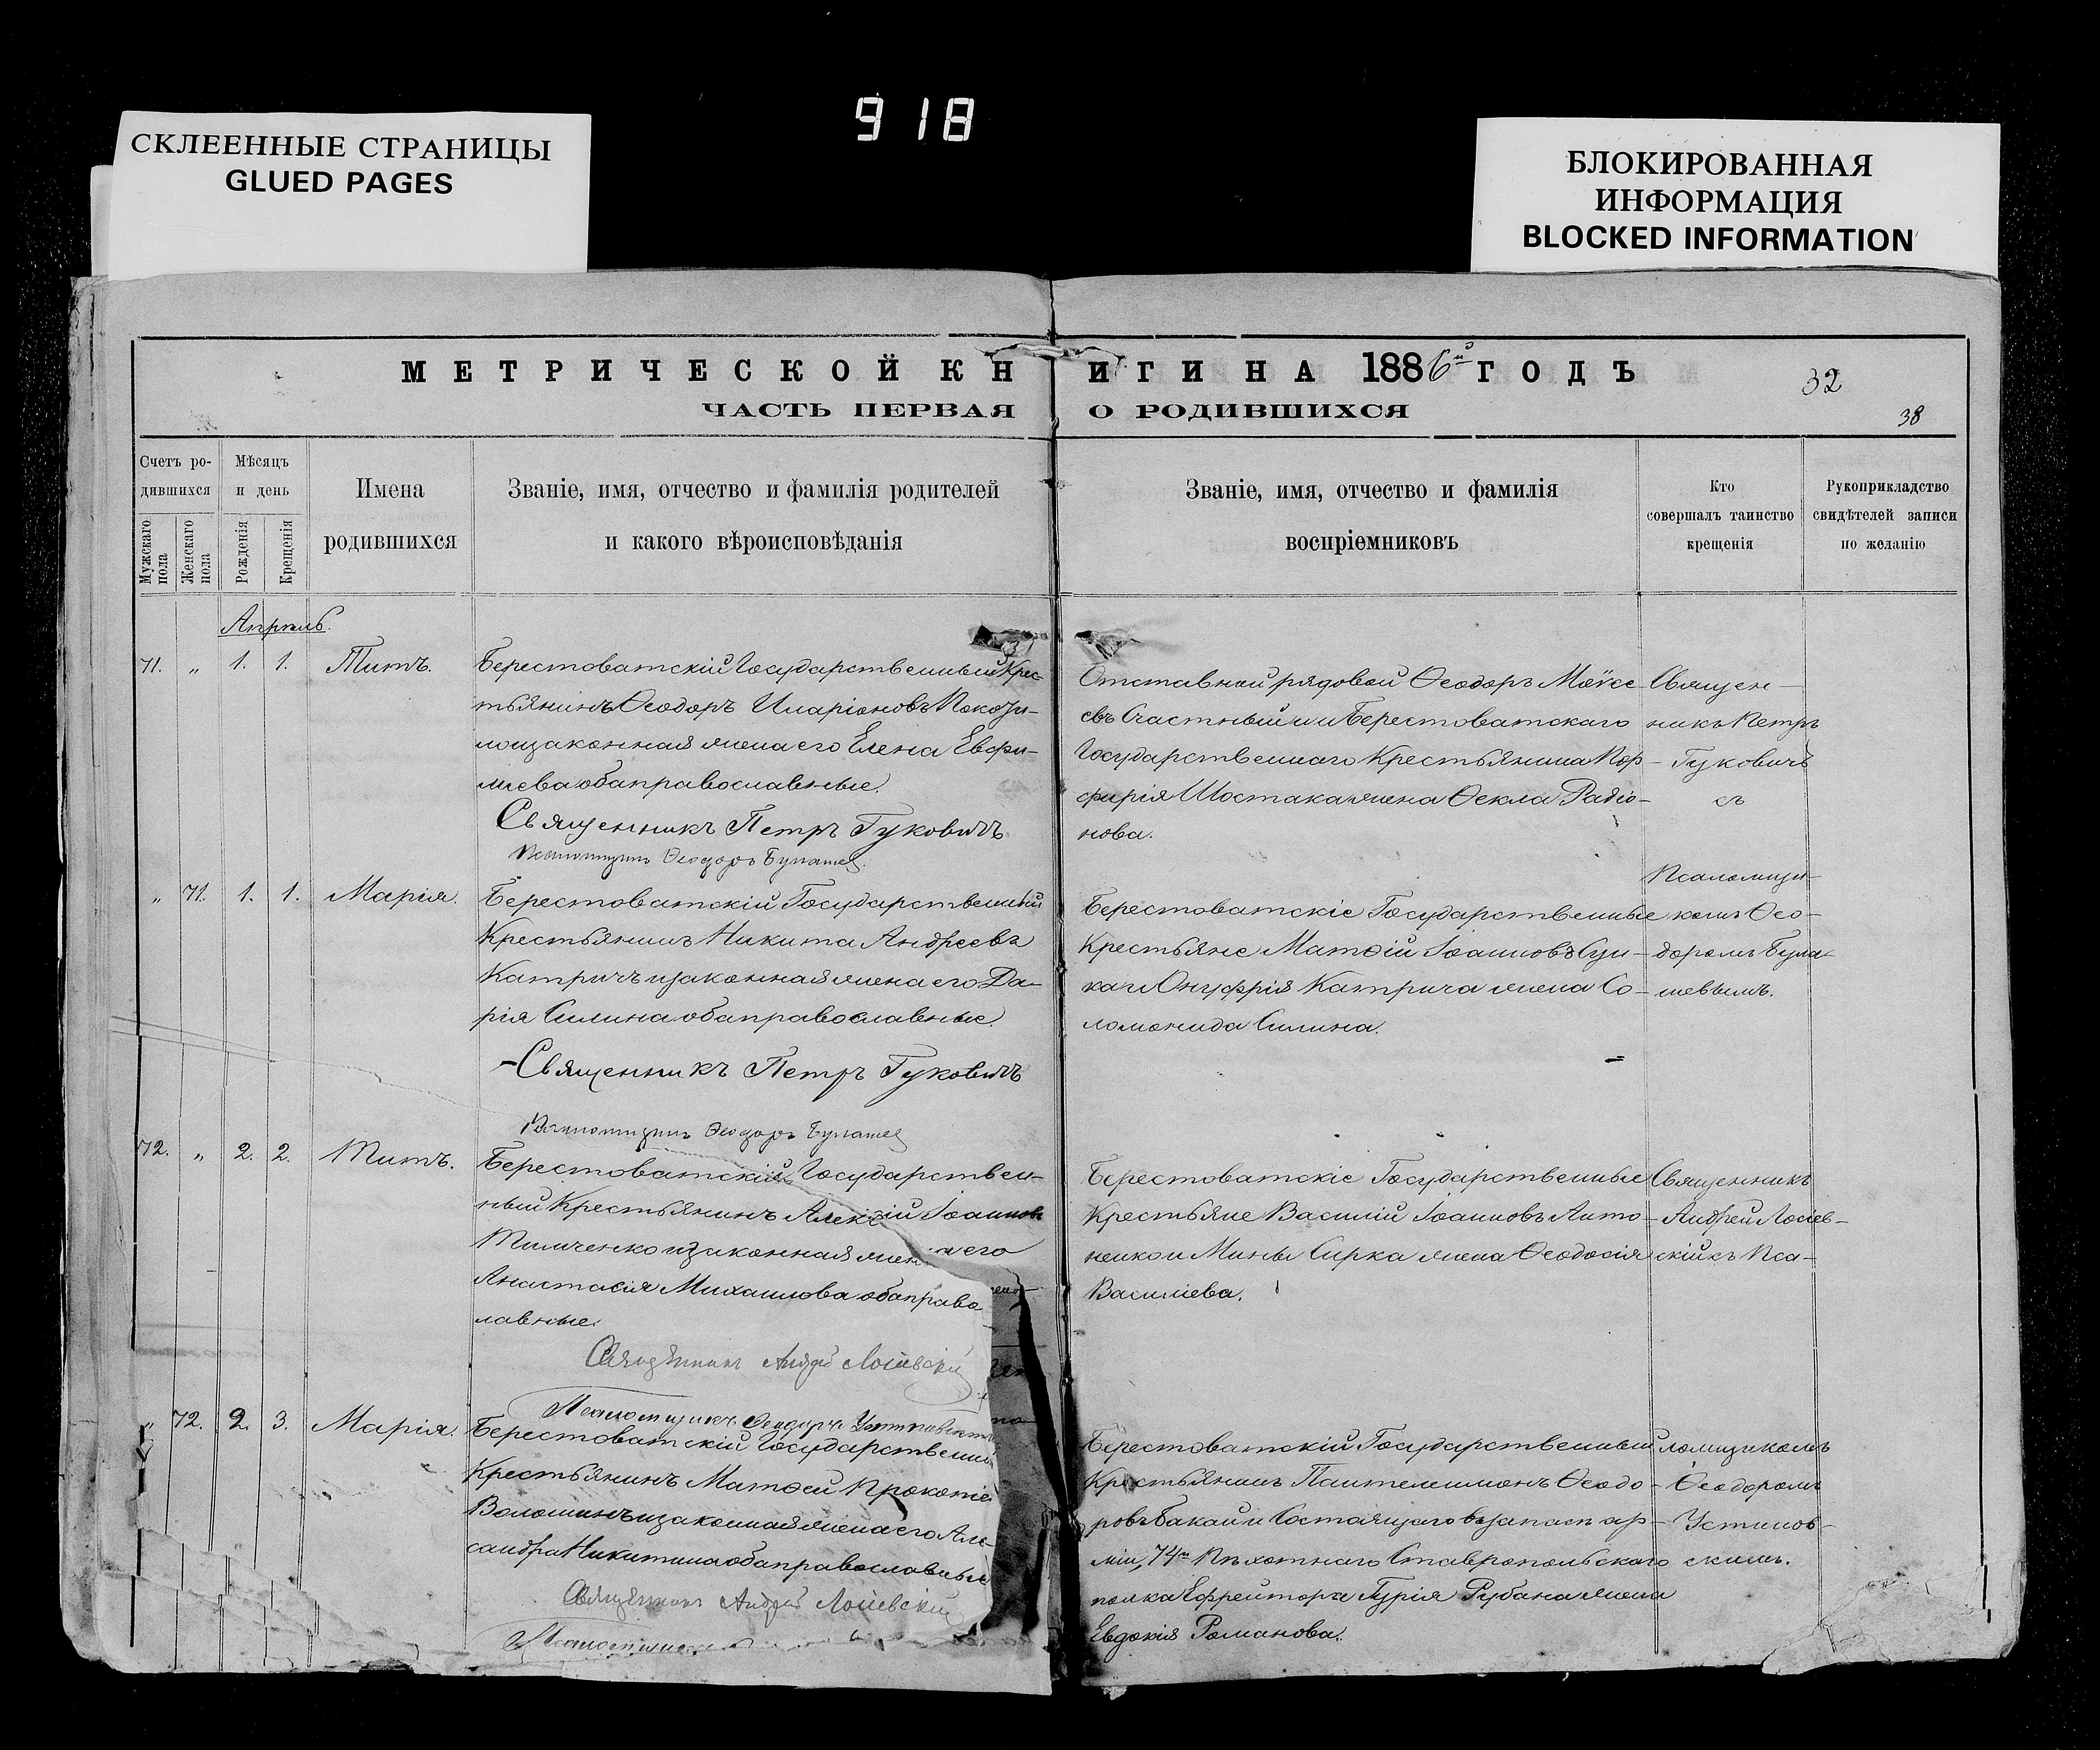 918
СКЛЕЕННЫЕ СТРАНИЦЫ
GLUED PAGES
БЛОКИРОВАННАЯ
ИНФОРМАЦИЯ
BLOCKED INFORMATION
МЕТРИЧЕСКОЙ КНИГИ НА 1886й ГОДЪ
32
ЧАСТЬ ПЕРВАЯ О РОДИВШИХСЯ
38
Счетъ ро-
дившихся
Мужскаго пола
Женскаго пола
Мѣсяцъ
и день
Рожденія
Крещенія
Имена
родившихся
Званіе, имя, отчество и фамилія родителей
и какого вѣроисповѣданія
Званіе, имя, отчество и фамилія
воспріемниковъ
Кто
совершалъ таинство
крещенія
Рукоприкладство
свидѣтелей записи
по желанію
Апрѣль.
71. „ 1. 1. Титъ.
Берестоватскій Государственный Крес-
тьянинъ Ѳеодоръ Иларіоновъ
и законная жена его Елена Евфи-
міева оба православные.
Священникъ Петръ Гуковичъ
Псаломщикъ Ѳеодоръ Булашев
Отставной рядовой Ѳеодоръ Моѵсе-
евъ Счастный и Берестоватскаго
Государственнаго Крестьянина Пор-
фирія Шостака жена Ѳекла Радіо-
нова.
Священ-
никъ Петръ
Гуковичъ
съ
Псаломщи-
комъ Ѳео-
доромъ Була-
шевымъ.
„ 71. 1. 1. Марія.
Берестоватскій Государственный
Крестьянинъ Никита Андреевъ
Катричъ и законная жена его Да-
рія Силина оба православные.
Священникъ Петръ Гуковичъ
Псаломщикъ Ѳеодоръ Булашев
Берестоватскіе Государственные
Крестьяне Матѳій Іоанновъ
и Онуфрія Катрича жена Со-
ломонида Силина.
72. „ 2. 2. Титъ.
Берестоватскій Государствен-
ный Крестьянинъ Алексій Іоанновъ
Тимченко и законная жена его
Анастасія Михаилова оба право
лавные.
Священникъ Андрей Лосіевскій
Псаломщикъ Ѳеодоръ Устиновскій
Берестоватскіе Государственные
Крестьяне Василій Іоанновъ Анто-
ненко и Мины Сирка жена Ѳеодосія
Василіева.
Священникъ
Андрей Лосіев-
скій съ Пса-
ломщикомъ
Ѳеодоромъ
Устинов-
скимъ.
„ 72. 2. 3. Марія.
Берестоватскій Государственный
Крестьянинъ Матѳей Прокопіе
Волошинъ и законная жена его Але
сандра Никитина оба православные
Священникъ Андрей Лосіевскій
Берестоватскій Государственный
Крестьянинъ Пантелеимонъ Ѳеодо-
ровъ Бакай и Состоящаго въ запасѣ ар-
міи, 74го Пѣхотнаго Ставропольскаго
полка Ефрейтора Гурія Рубана жена
Евдокія Романова.